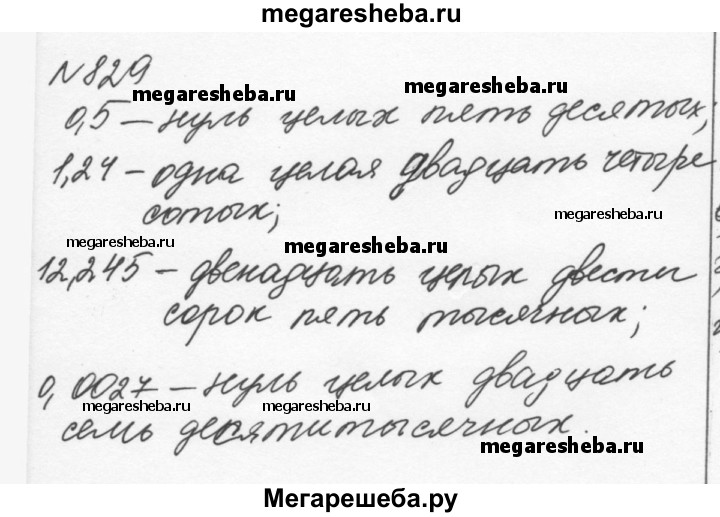 megaresheba.ru
N829
megaresheba.ru
megaresheba.ru
0,5 – нуль целых пять десятых;
1,24 – одна целая двадцать четыре
сотых;
megaresheba.ru
megaresheba.ru
megaresheba.ru
12,245 – двенадцать целых двести
сорок пять тысячных;
0,0027 – нуль целых двадцать
megaresheba.ru
megaresheba.ru
семь десятитысячных.
megaresheba.ru
Мегарешеба.ру